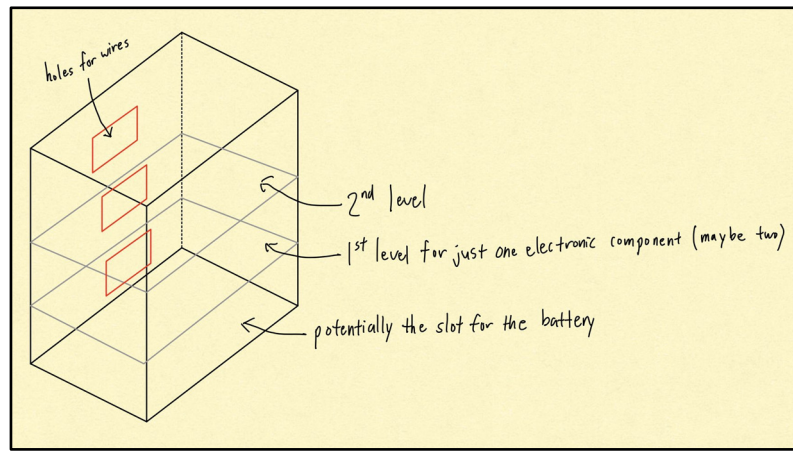 holes for wires
2nd level
1st level for just one electronic component (maybe two)
potentially the slot for the battery